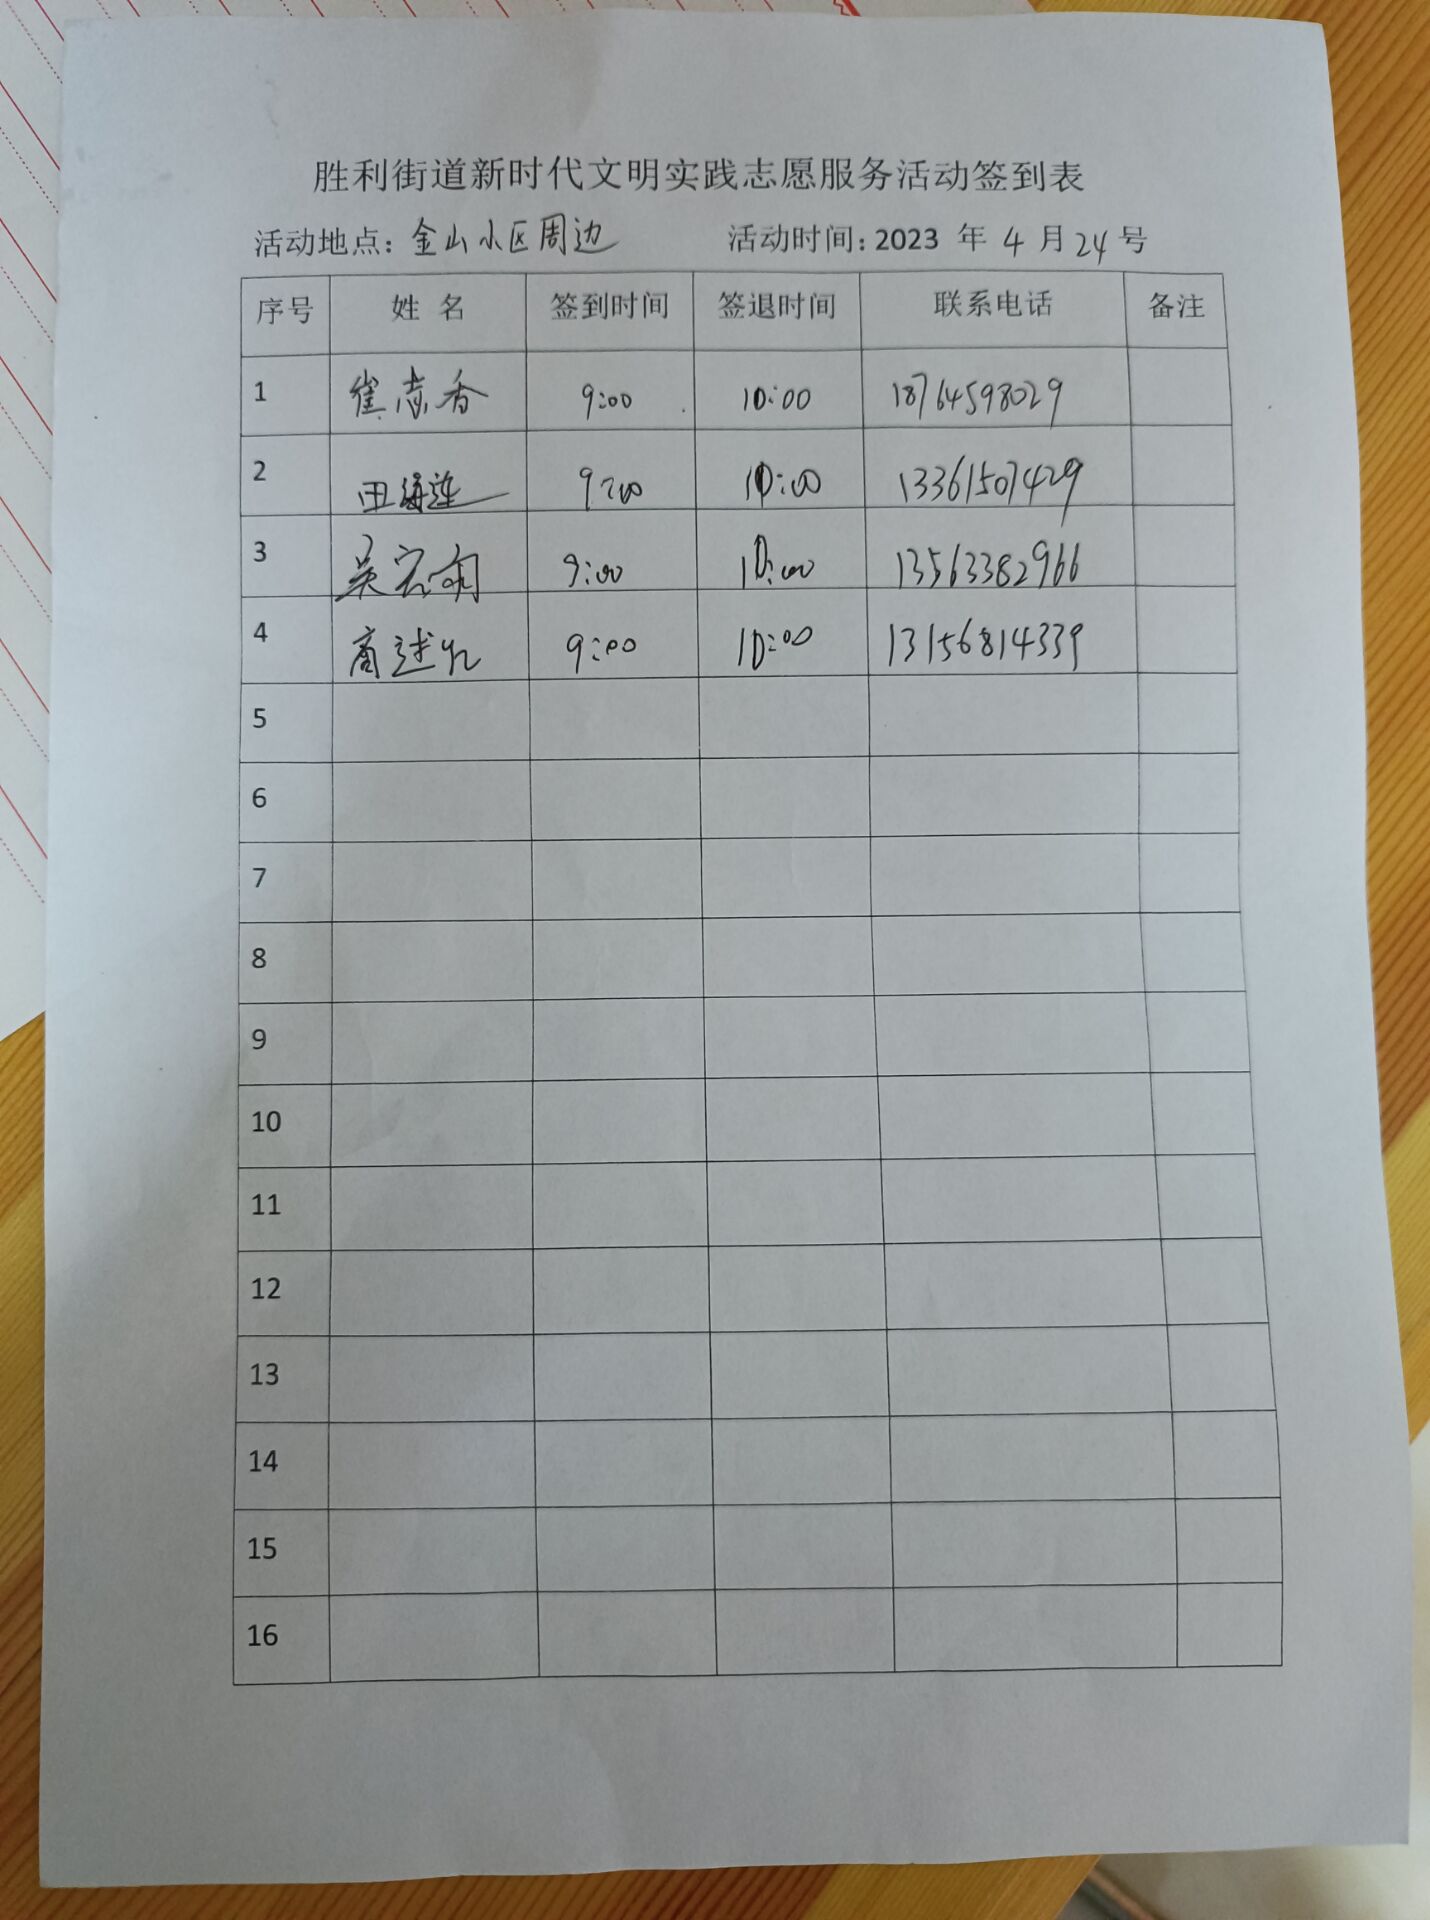 胜利街道新时代文明实践志愿服务活动签到表
活动地点：金山小区周边 活动时间：2023 年 4 月 24 号
序号 姓 名 签到时间 签退时间 联系电话 备注
1 崔志香 9:00 10:00 18764598029
2 田海连 9:00 10:00 13361507429
3 吴宏 9:00 10:00 13563382966
4 商述 9:00 10:00 13156814339
5
6
7
8
9
10
11
12
13
14
15
16